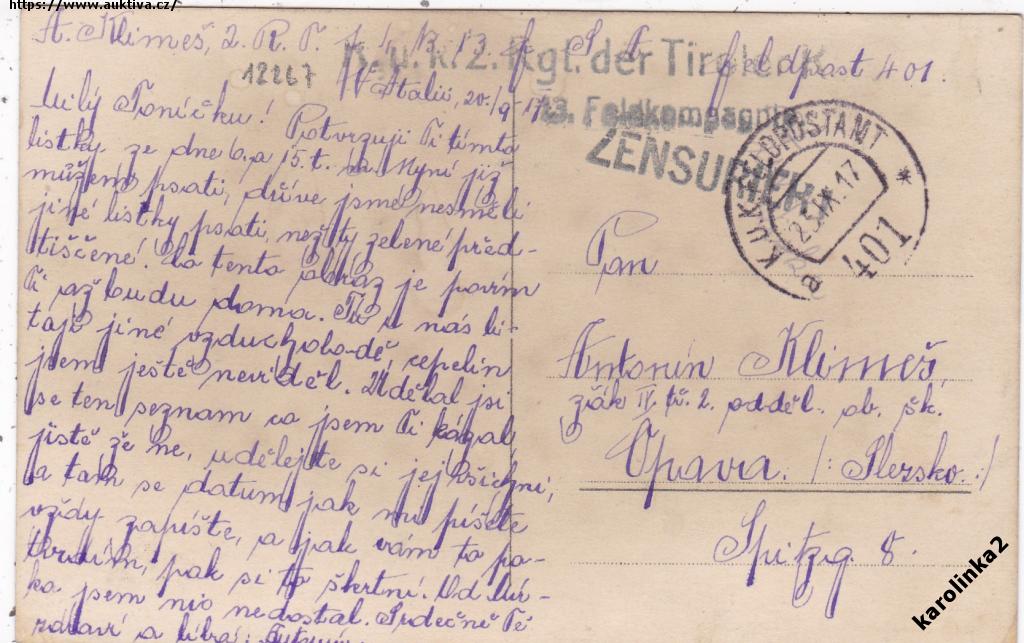 https://www.auktiva.cz/
A. Klimeš, 2. R. T. J. 13. 13. f Feldpost 401.
K. u. k. 2. Rgt. der Tiroler K
12267
V Italii, 20./9. 17
13. Feldkompagnie
ZENSURIERT
K.U.K. FELDPOSTAMT
25.IX.17
a 401 *
Milý Toníčku! Potvrzuji Ti tímto
lístky ze dne 6. a 15. t. m. Nyní již
můžeme psáti, dříve jsme nesměli
jiné lístky psáti, než ty zelené před-
tištěné! Co tento obraz je povím
Ti až budu doma. Tu u nás lí-
tají jiné vzducholodě, cepelin
jsem ještě neviděl. Udělal jsi
se ten seznam co jsem Ti kázal
jistě že ne, udělejte si jej všichni,
a tam se datum jak mi píšete
vždy zapište, a jak vám to po-
tvrdím, pak si to škrtni. Od Jur-
ka jsem nic nedostal. Srdečně Tě
zdraví a líbá: Antonín
Pan
Antonín Klimeš,
žák IV. tř. 2. odděl. ob. šk.
Opava. /: Slezsko :/
Spitzg 8.
karolinka2